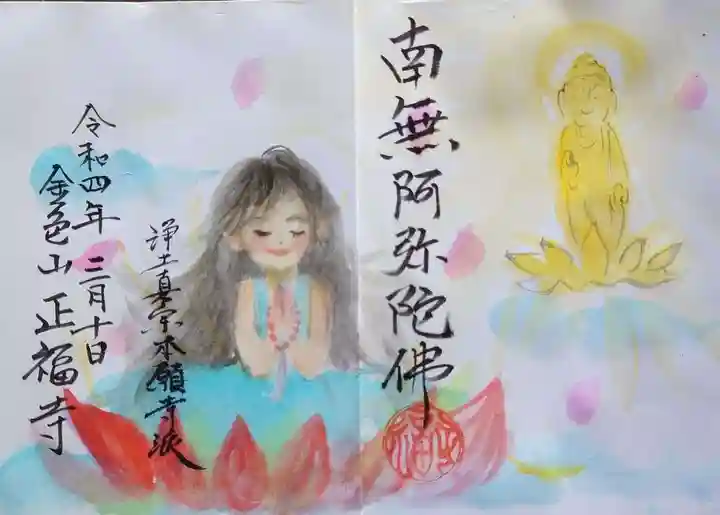 南無阿弥陀佛
浄土真宗本願寺派
令和四年 三月十日
金色山 正福寺